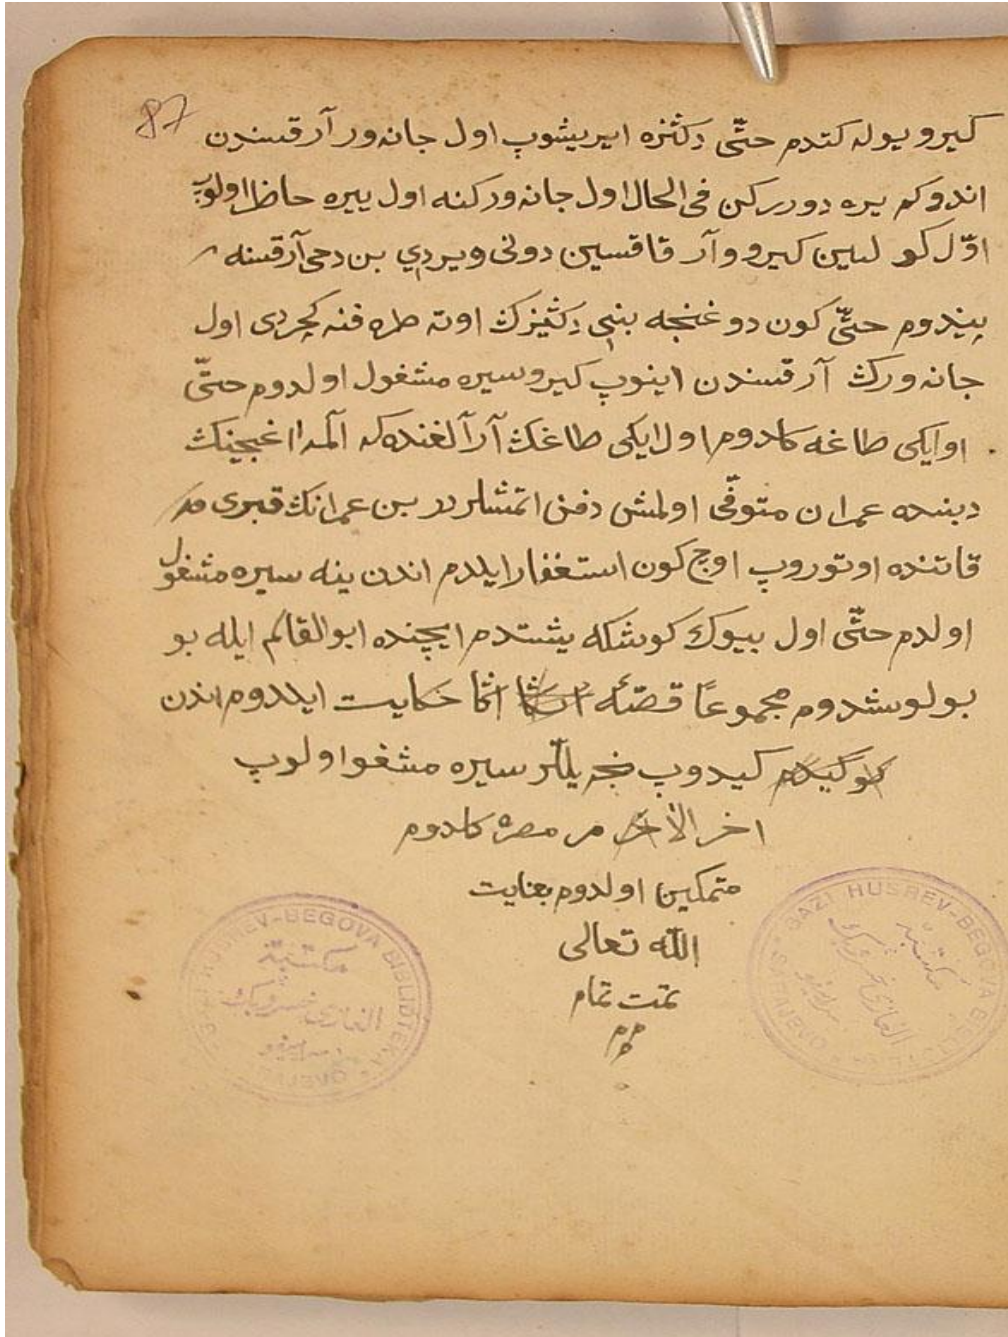 87
كيرو يوله كتدم حتّى دكزه ايريشوپ اول جانه ور آرقسندن
اندوكم يره دورركن فى الحال اول جانه ور كنه اول ييره حاضر اولوب
اوّل كو كيرو وآر قاقسين دونى ويردي بن دحى آرقسنه
بيندوم حتّى كون دوغنجه بنى دكزك اوته طرفنه كچردى اول
جانه ورك آرقسندن اينوپ كيرو سيره مشغول اولدوم حتّى
اوايكى طاغه كلدوم اول ايكى طاغك آرآلغنده كه آلمه اغجينك
دبنده عمران متوفّى اولمش دفن اتمشلردر بن عمرانك قبرى
قاتنده اوتوروپ اوچ كون استغفار ايلدم اندن ينه سيره مشغول
اولدم حتّى اول بيوك كوشكه يشتدم ايچنده ابوالقائم ايله بو
بولوشدوم مجموعًا قصّه اڭا حكايت ايلدوم اندن
كيدوب نجه ييللر سيره مشغو اولوپ
اخر الاخر مصره كلدوم
متمكين اولدوم بعنايت
الله تعالى
تمت تمام
ممم
GAZI HUSREV-BEGOVA BIBLIOTEKA
SARAJEVO
مكتبة
الغازى خسروبك
سرايفو
GAZI HUSREV-BEGOVA BIBLIOTEKA
SARAJEVO
مكتبة
الغازى خسروبك
سرايفو